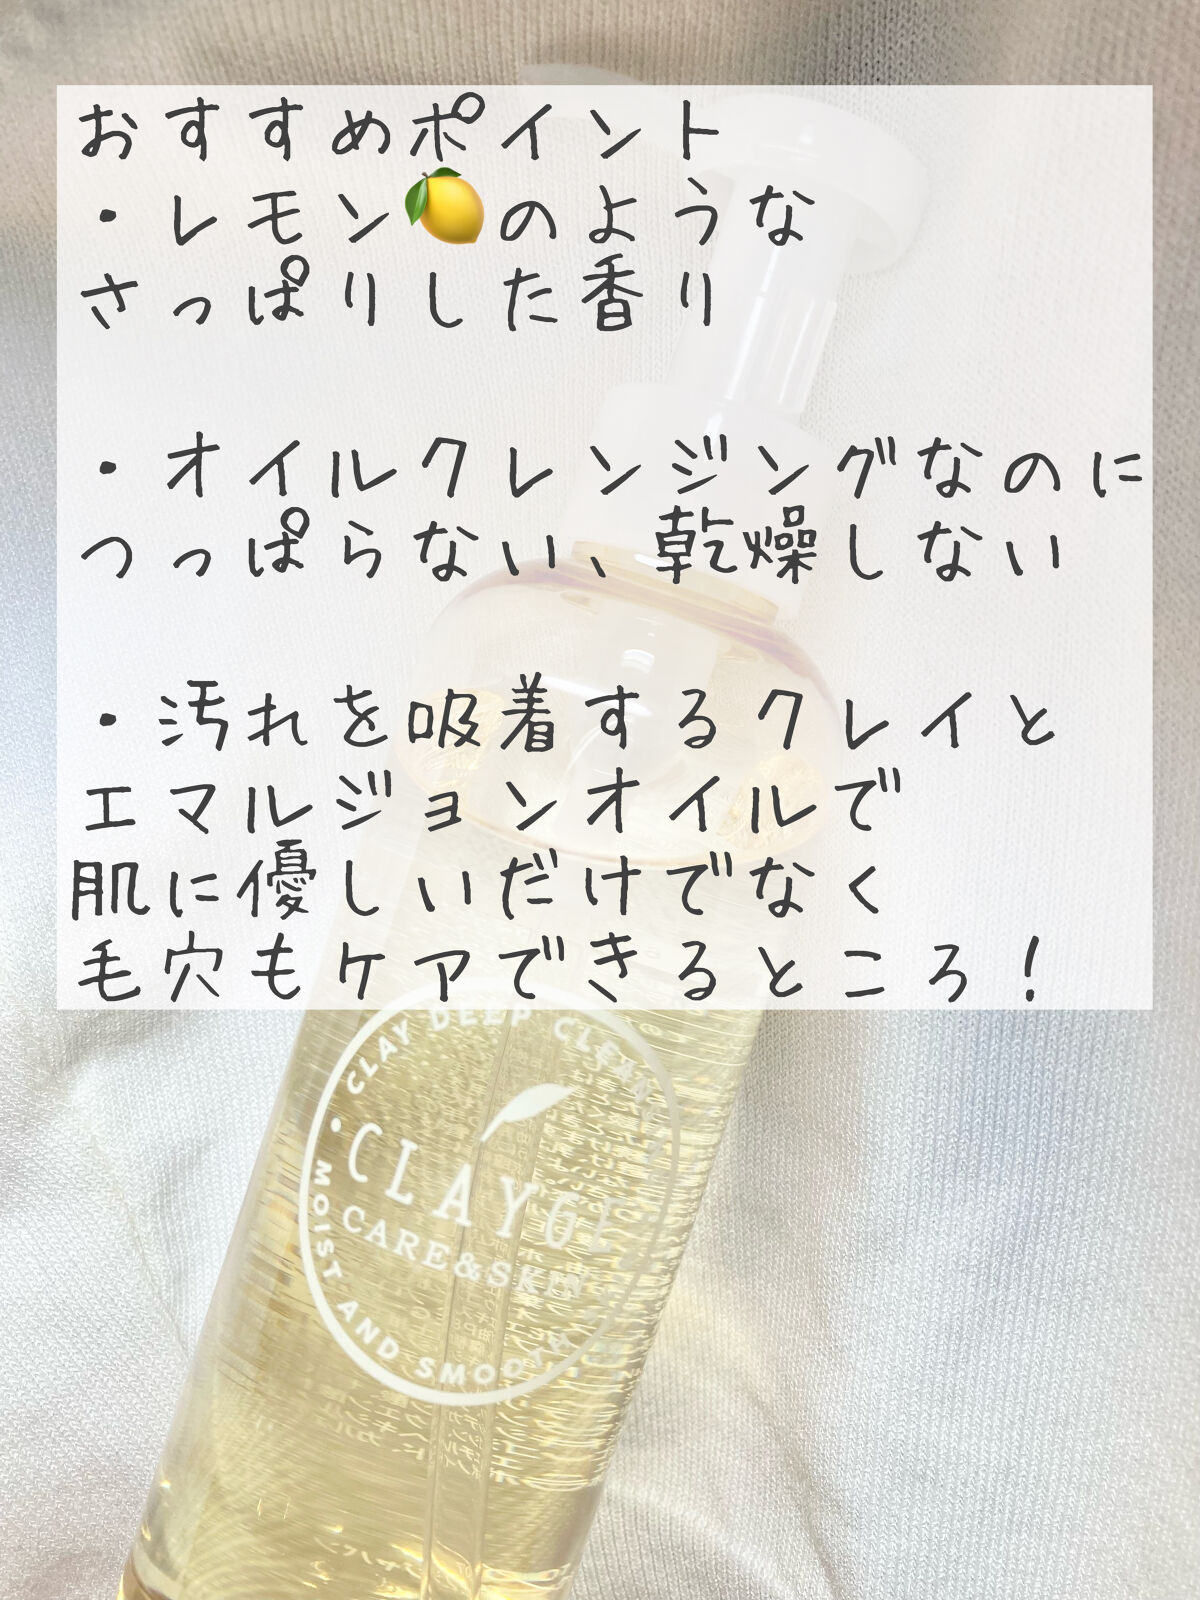 おすすめポイント
・レモン🍋のような
さっぱりした香り
・オイルクレンジングなのに
つっぱらない、乾燥しない
・汚れを吸着するクレイと
エマルジョンオイルで
肌に優しいだけでなく
毛穴もケアできるところ！
CLAY DEEP CLEANSE
CLAYGE
CARE&SKIN
MOIST AND SMOOTH